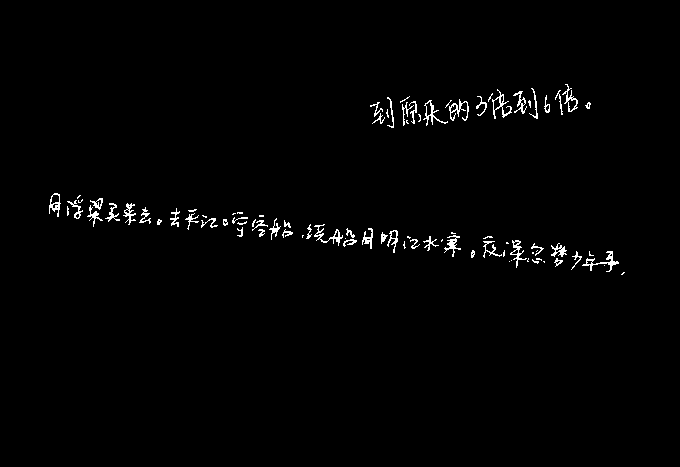 到原来的3倍到6倍。
月浮梁买茶去。去来江口守空船,绕船月明江水寒。夜深忽梦少年事,